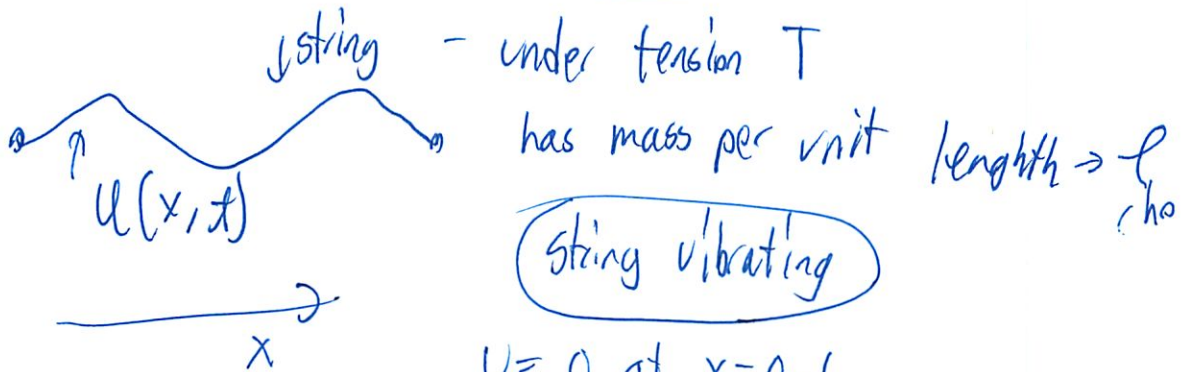 ↓string - under tension T
has mass per unit lenghth → ρ
rho
u(x,t)
string vibrating
x
U= 0 at x=0,